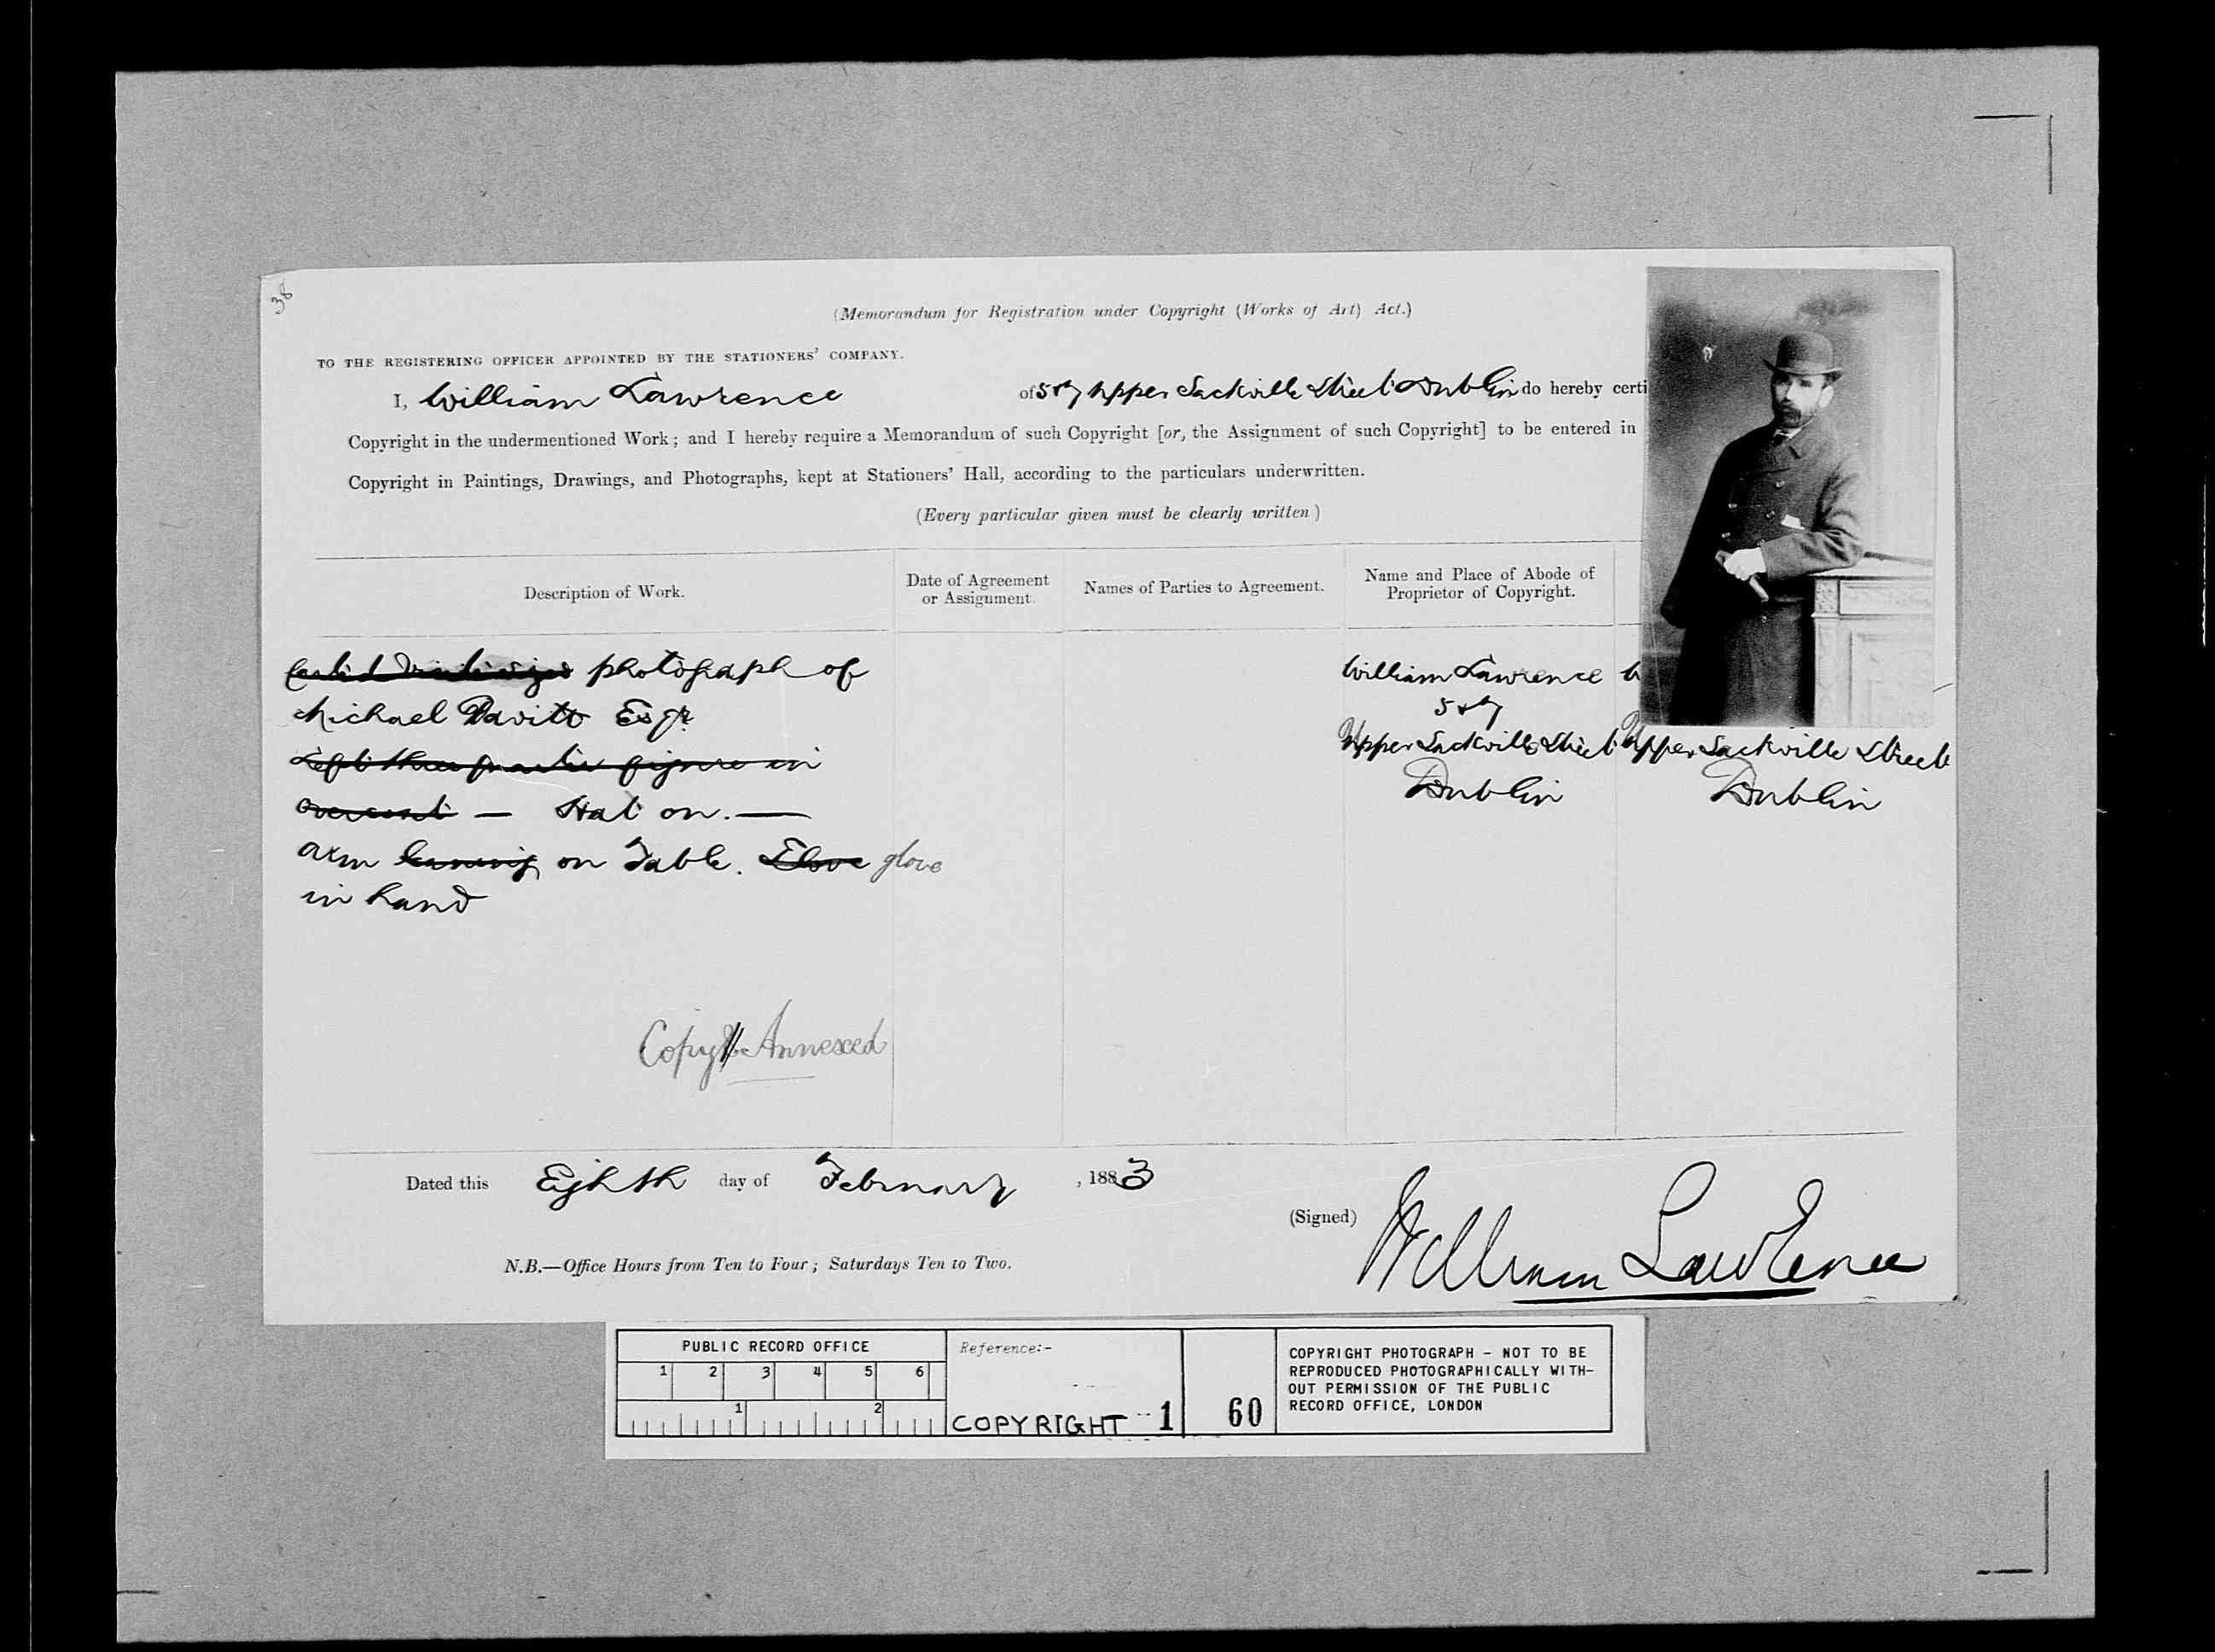 38
(Memorandum for Registration under Copyright (Works of Art) Act.)
TO THE REGISTERING OFFICER APPOINTED BY THE STATIONERS' COMPANY.
I, William Lawrence of 5 & 7 Upper Sackville Street Dublin do hereby certi
Copyright in the undermentioned Work; and I hereby require a Memorandum of such Copyright [or, the Assignment of such Copyright] to be entered in
Copyright in Paintings, Drawings, and Photographs, kept at Stationers' Hall, according to the particulars underwritten.
(Every particular given must be clearly written)
Description of Work.
Date of Agreement
or Assignment.
Names of Parties to Agreement.
Name and Place of Abode of
Proprietor of Copyright.
Carte d Visite size photograph of
Michael Davitt Esqr.
Left three quarter figure in
overcoat — Hat on. —
arm leaning on Table. Glove glove
in hand
William Lawrence
5 & 7
Upper Sackville Street
Dublin
Upper Sackville Street
Dublin
Copy Annexed
Dated this Eighth day of February, 1883
(Signed) William Lawrence
N.B.—Office Hours from Ten to Four; Saturdays Ten to Two.
PUBLIC RECORD OFFICE
1 2 3 4 5 6
1 2
Reference:-
COPYRIGHT 1
60
COPYRIGHT PHOTOGRAPH - NOT TO BE
REPRODUCED PHOTOGRAPHICALLY WITH-
OUT PERMISSION OF THE PUBLIC
RECORD OFFICE, LONDON